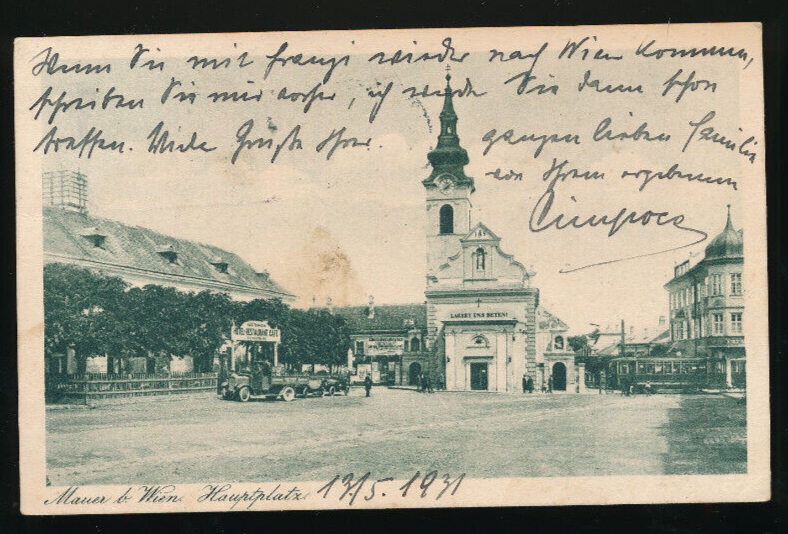 Wenn Sie mit Franzi wieder nach Wien kommen,
schreiben Sie mir vorher, ich werde Sie dann schon
treffen. Viele Grüße Ihrer ganzen lieben Familie
von Ihrem ergebenen
HOTEL-RESTAURANT CAFÉ
LASSET UNS BETEN!
Mauer b. Wien. Hauptplatz. 13/5. 1931